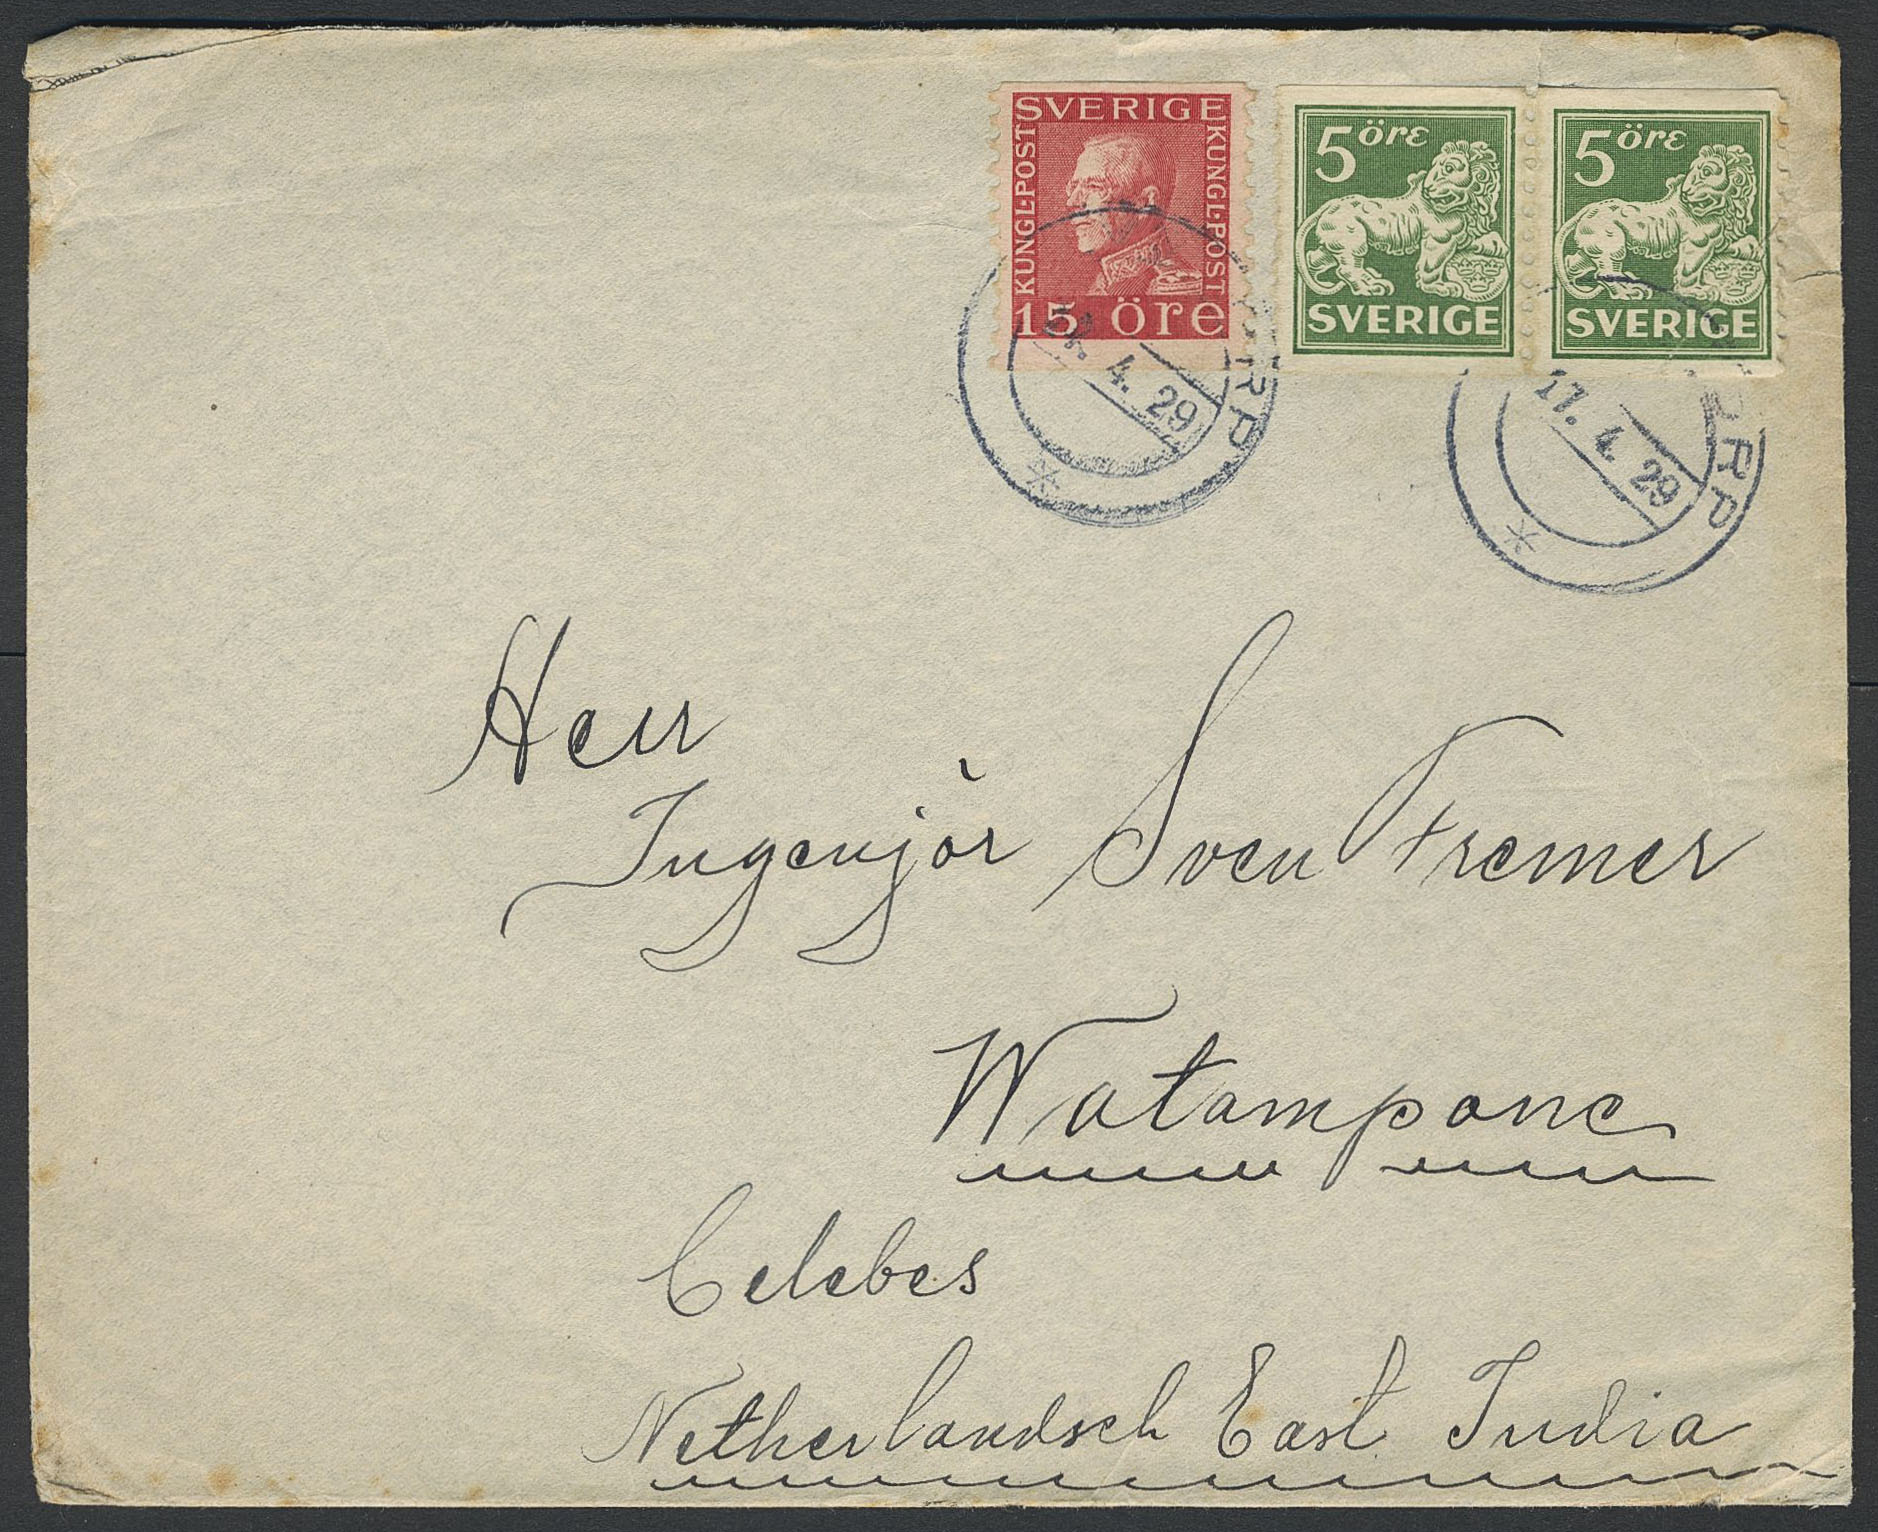 SVERIGE
KUNGL·POST
KUNGL·POST
15 öre
5 öre
SVERIGE
5 öre
SVERIGE
4. 29
17. 4. 29
Herr
Ingenjör Sven Fremer
Watampone
Celebes
Netherlandsch East India